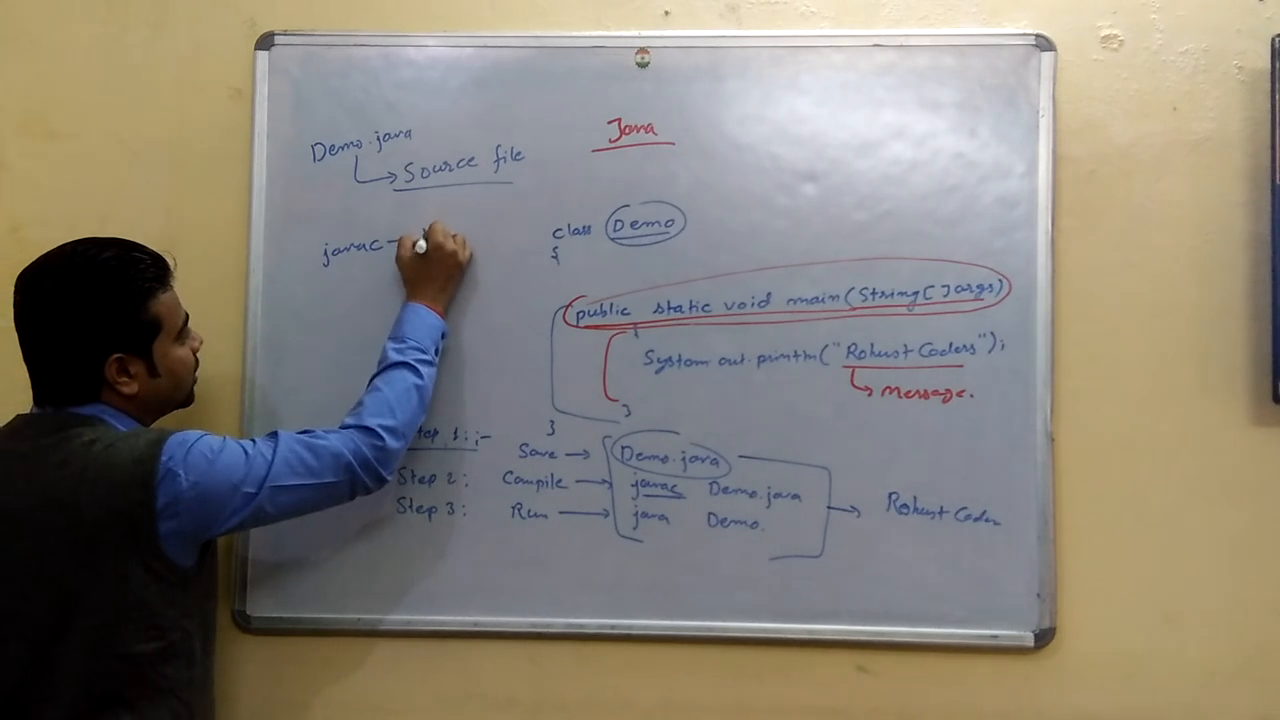 Java
Demo.java
Source file
javac
class Demo
{
public static void main(String[] args)
{
System.out.println("Robust Coders");
Message.
}
}
Step 1:-
Save → Demo.java
Step 2: Compile → javac Demo.java
Step 3: Run → java Demo.
Robust Coder